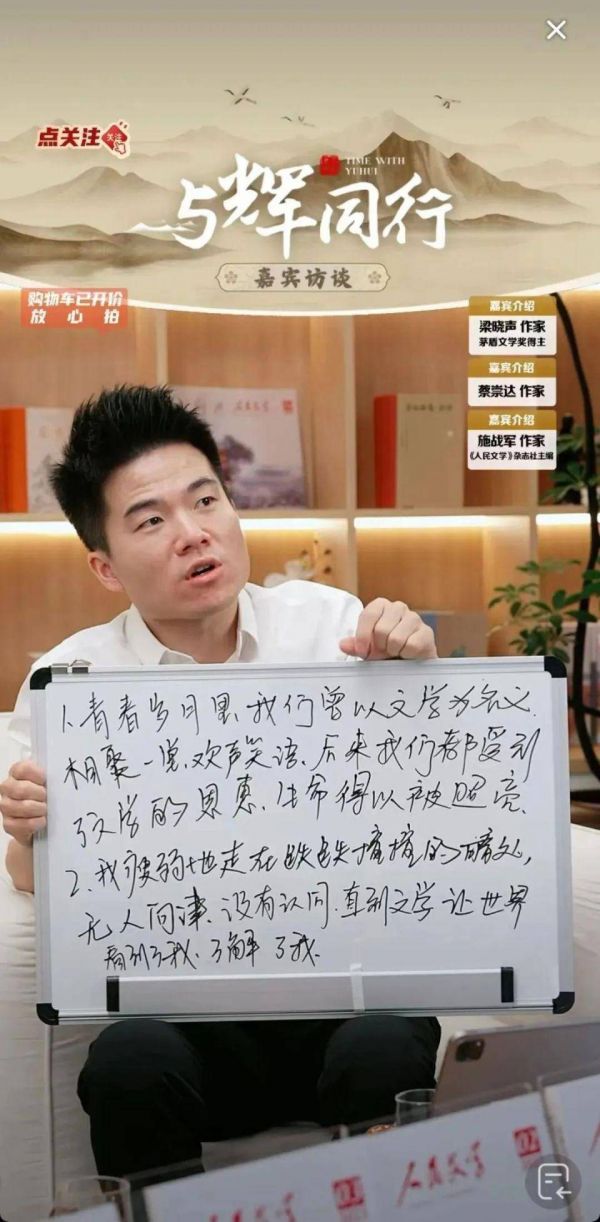 点关注
关注
TIME WITH
YUHUI
与辉同行
嘉宾访谈
购物车已开价
放心拍
嘉宾介绍
梁晓声 作家
茅盾文学奖得主
嘉宾介绍
蔡崇达 作家
嘉宾介绍
施战军 作家
《人民文学》杂志社主编
1、青春岁月里、我们曾以文学为名义、
相聚一堂、欢声笑语、后来我们都受到
文学的恩惠、生命得以被照亮、
2、我疲弱地走在跌跌撞撞的暗处,
无人问津、没有认同、直到文学让世界
看到了我、了解了我、
人民文学
07